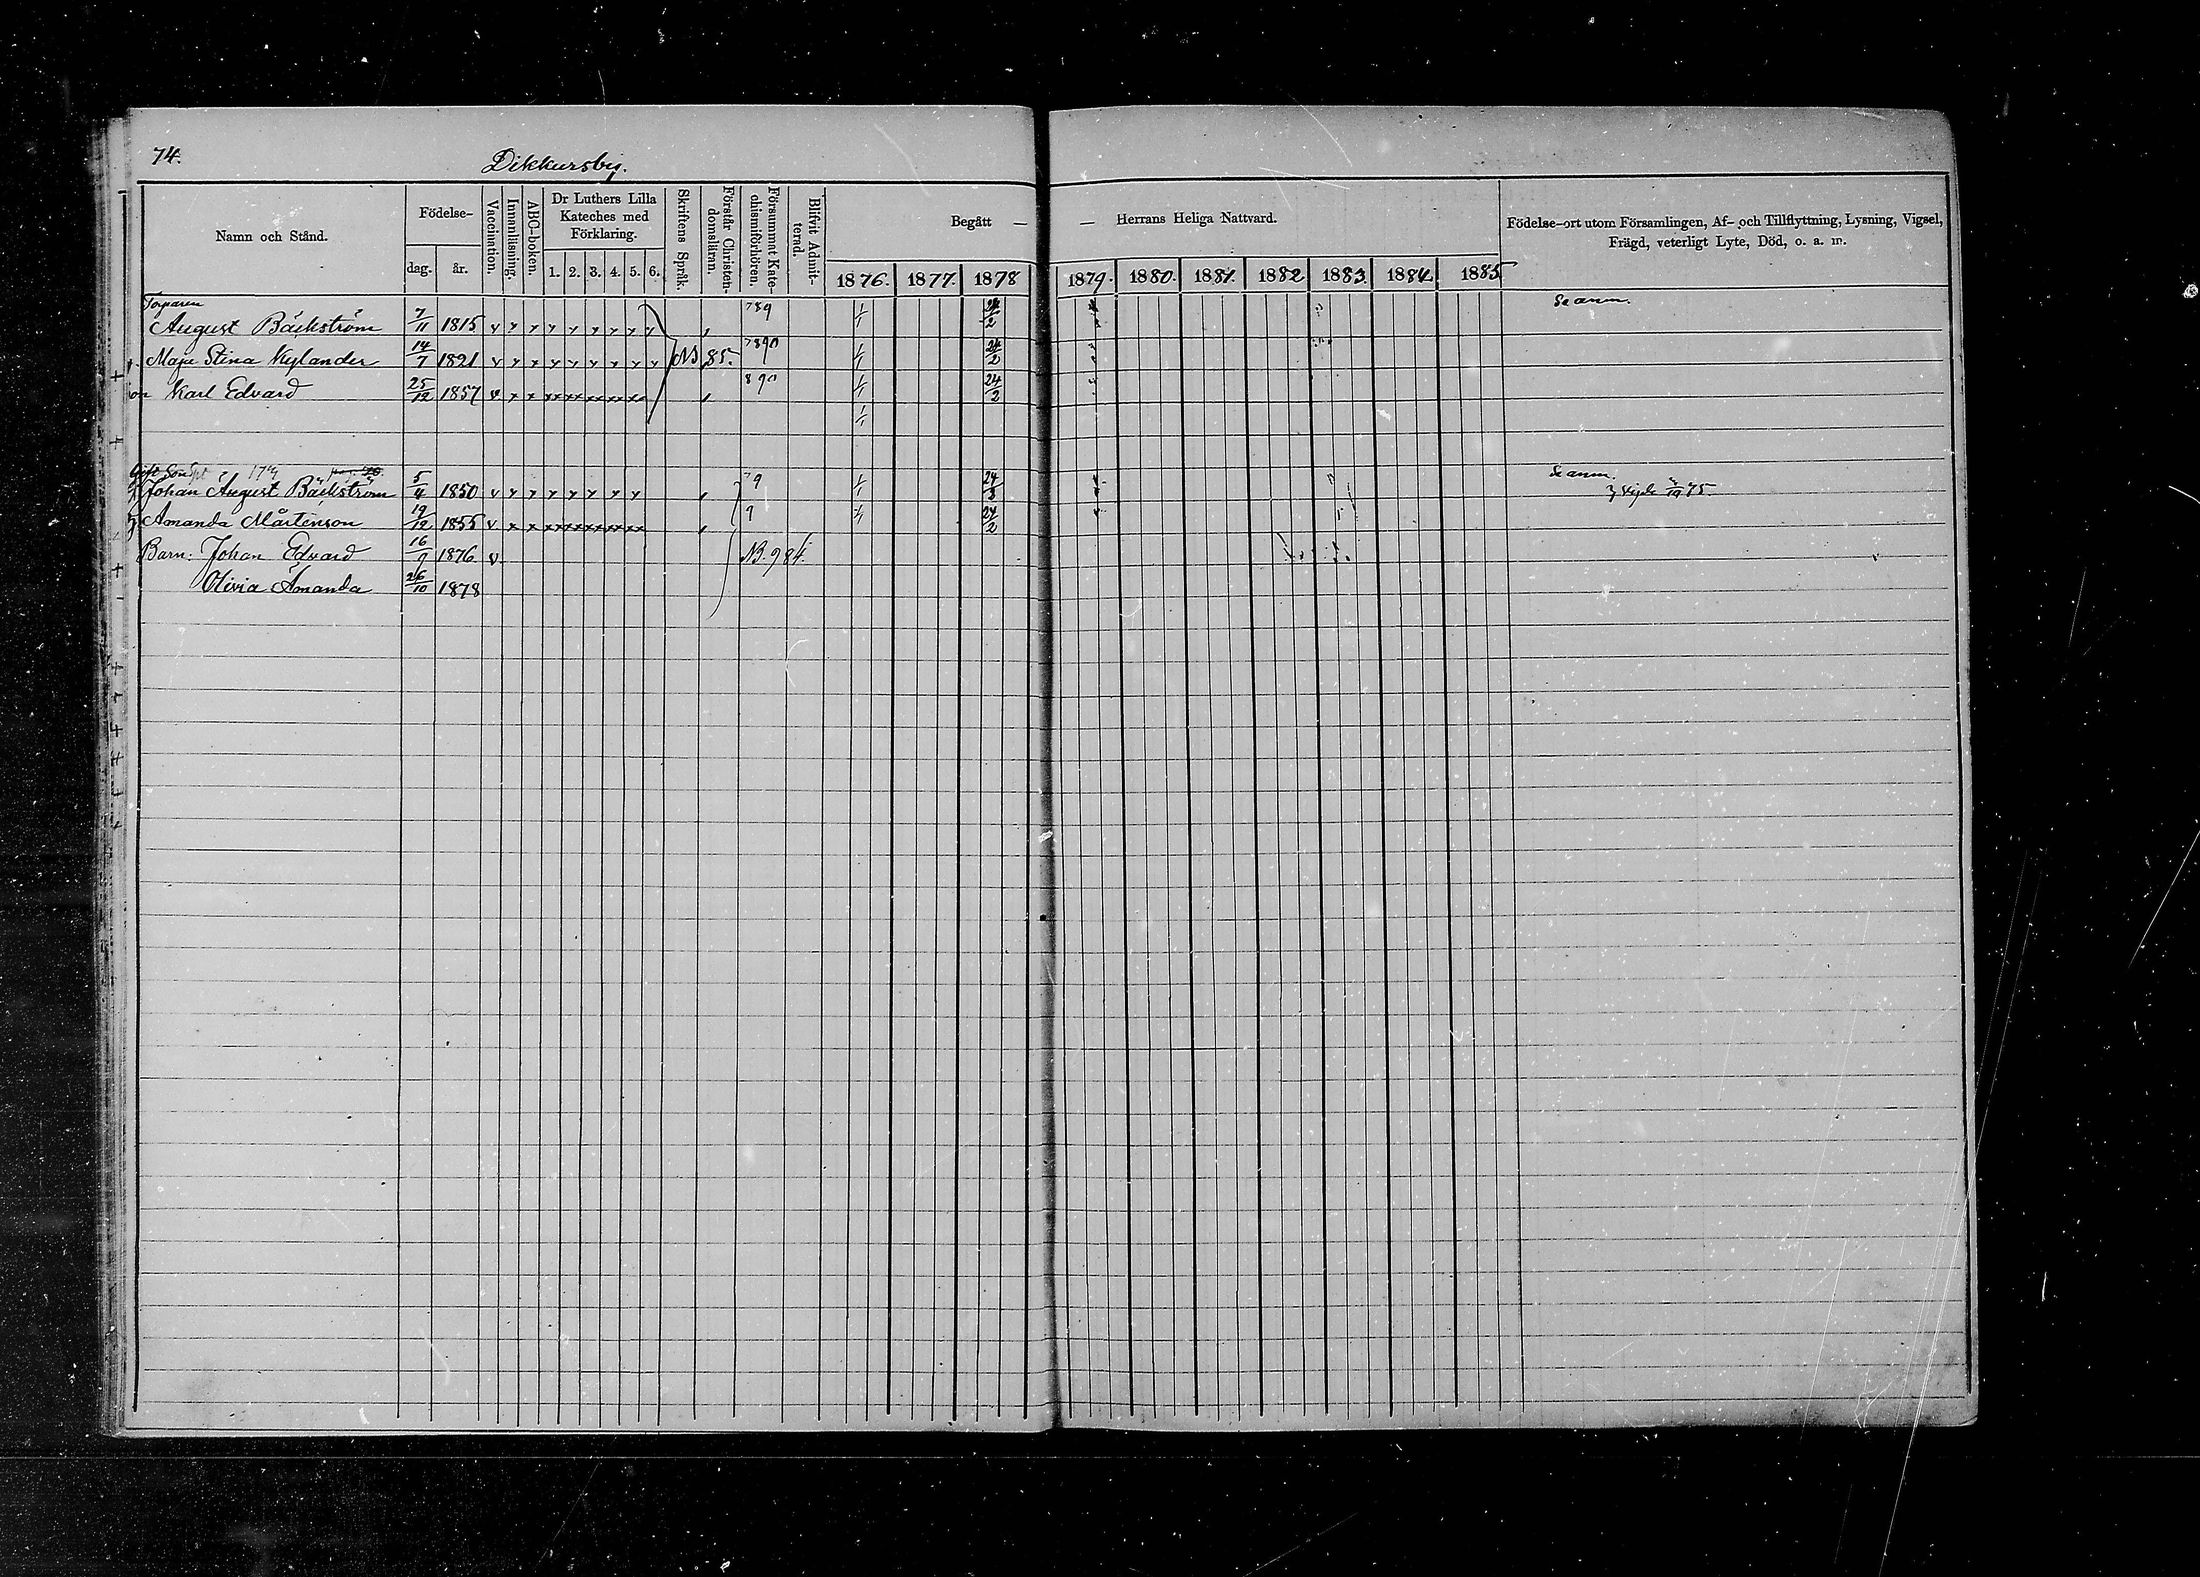 74.
Dikkursby.
Namn och Stånd.
Födelse-
dag.
år.
Vaccination.
Innanläsning.
ABC-boken.
Dr Luthers Lilla
Kateches med
Förklaring.
1. 2. 3. 4. 5. 6.
Skriftens Språk.
Förstår Christen-
domsläran.
Försummat Kate-
chismiförhören.
Blifvit Admit-
terad.
Begått —
— Herrans Heliga Nattvard.
1876. 1877. 1878 1879. 1880. 1881. 1882 1883. 1884. 1885
Födelse-ort utom Församlingen, Af- och Tillflyttning, Lysning, Vigsel,
Frägd, veterligt Lyte, Död, o. a. m.
Torparen
August Bäckström 7/11 1815 v 789 1/1 24/2 Se anm.
Maja Stina Nylander 14/7 1821 v NB 85. 7890 1/1 24/2
Karl Edvard 25/12 1857 v 890 1/1 24/2
1/1
Gift Son
Johan August Bäckström 5/4 1850 v 79 1/1 24/3 Se anm.
75.
Amanda Mårtenson 19/12 1855 v 9 1/1 24/2
Barn: Johan Edvard 16/9 1876 v NB. 984.
Olivia Amanda 26/10 1878